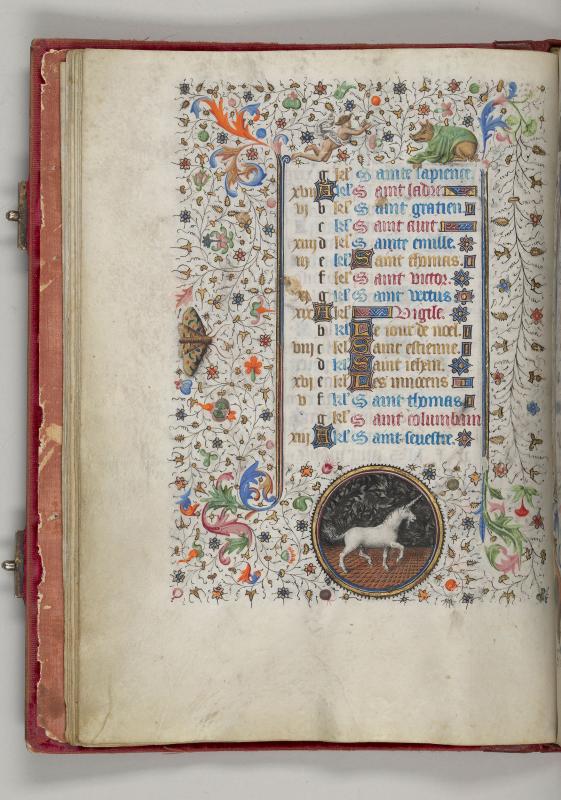 g kl' Sainte sapience.
xvij A kl' Saint ladre
vj b kl' Saint gratien.
c kl' Saint
xiiij d kl' Sainte emille.
iij e kl' Saint thomas.
f kl' Saint victor.
xj g kl' Saint vertus.
xix A kl' Vigile.
b kl' Le iour de noel.
viij c kl' Saint estienne.
d kl' Saint iehan.
xvj e kl' Les innocens
v f kl' Saint thomas
g kl' Saint columbam
xiij A kl' Saint seuestre.